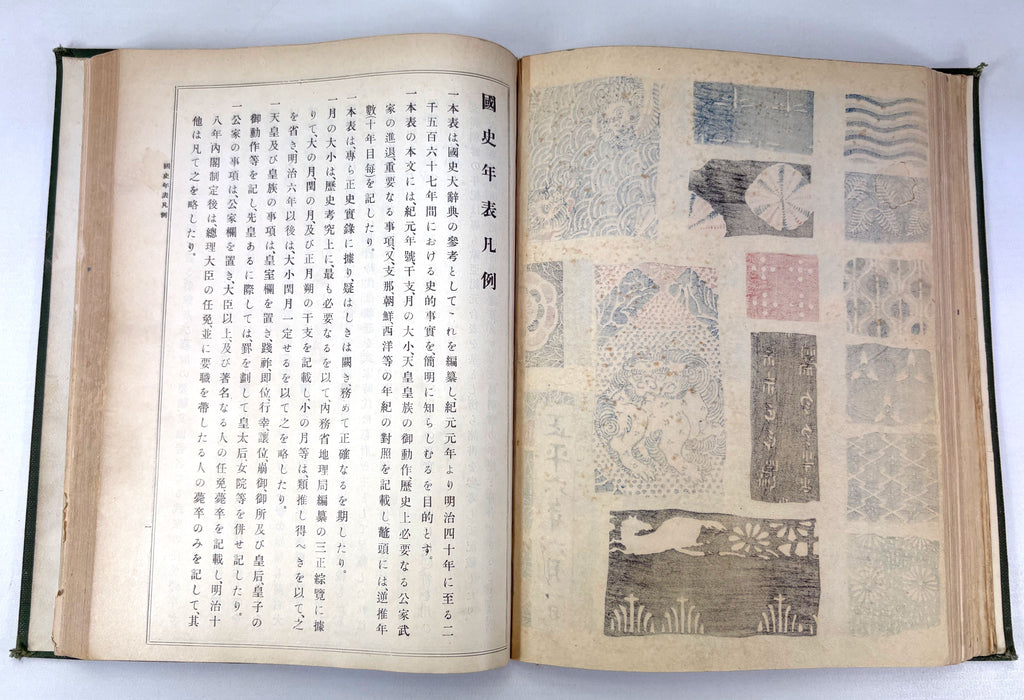 國史年表凡例
一本表は、國史大辭典の參考としてこれを編纂し、紀元元年より明治四十年に至る二
千五百六十七年間における史的事實を簡明に知らしむるを目的とす。
一本表の本文には、紀元、年號、干支、月の大小、天皇皇族の御動作、歷史上必要なる公家武
家の進退、重要なる事項、又支那朝鮮西洋等の年紀の對照を記載し、鼇頭には逆推年
數(十年目每)を記したり。
一本表は、專ら正史實錄に據り、疑はしきは闕き、務めて正確なるを期したり。
一月の大小は、歷史考究上に、最も必要なるを以て、內務省地理局編纂の三正綜覽に據
りて、大の月、閏の月、及び正月朔の干支を記載し、小の月等は、類推し得べきを以て、之
を省き、明治六年以後は大小閏月一定せるを以て之を略したり。
一天皇及び皇族の事項は、皇室欄を置き、踐祚、卽位、行幸、讓位、崩御、御所及び皇后、皇子の
御動作等を記し、先皇あるに際しては、罫を劃して皇太后、女院等を併せ記したり。
一公家の事項は、公家欄を置き、大臣以上、及び著名なる人の任免薨卒を記載し、明治十
八年內閣制定後は、總理大臣の任免、並に要職を帶したる人の薨卒のみを記して、其
他は凡て之を略したり。
國史年表凡例
一